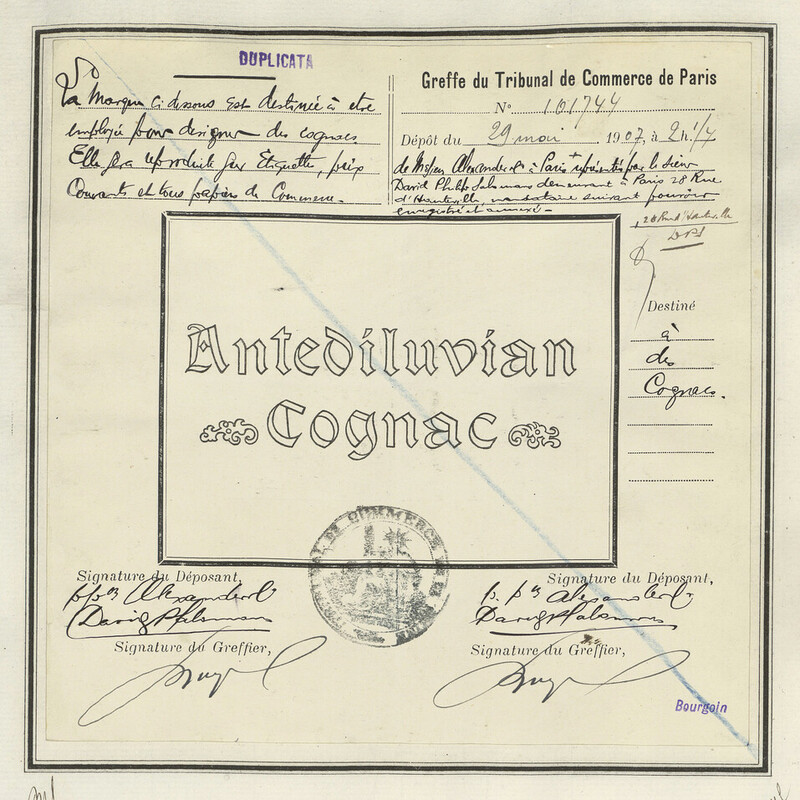 DUPLICATA
La Marque ci dessous est destinée à etre
employée pour designer des cognacs.
Elle sera reproduite sur Etiquettes, prix
Courants et tous papiers de Commerce.
Greffe du Tribunal de Commerce de Paris
N° 101744
Dépôt du 29 mai 1907, à 2h
à Paris représentés par le sieur
David Philip Salaman demeurant à Paris 28 Rue
d'Hauteville, mandataire suivant pouvoir
enregistré et annexé.
28 Rue d'Hauteville
DPS
Destiné
à
des
Cognacs.
Antediluvian
Cognac
TRIBUNAL DE COMMERCE DE LA SEINE
Signature du Déposant,
David P Salaman
Signature du Greffier,
Signature du Déposant,
David P Salaman
Signature du Greffier,
Bourgoin